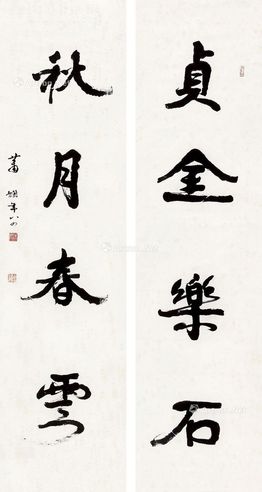 貞金樂石
秋月春雲
蕭嫻年八十